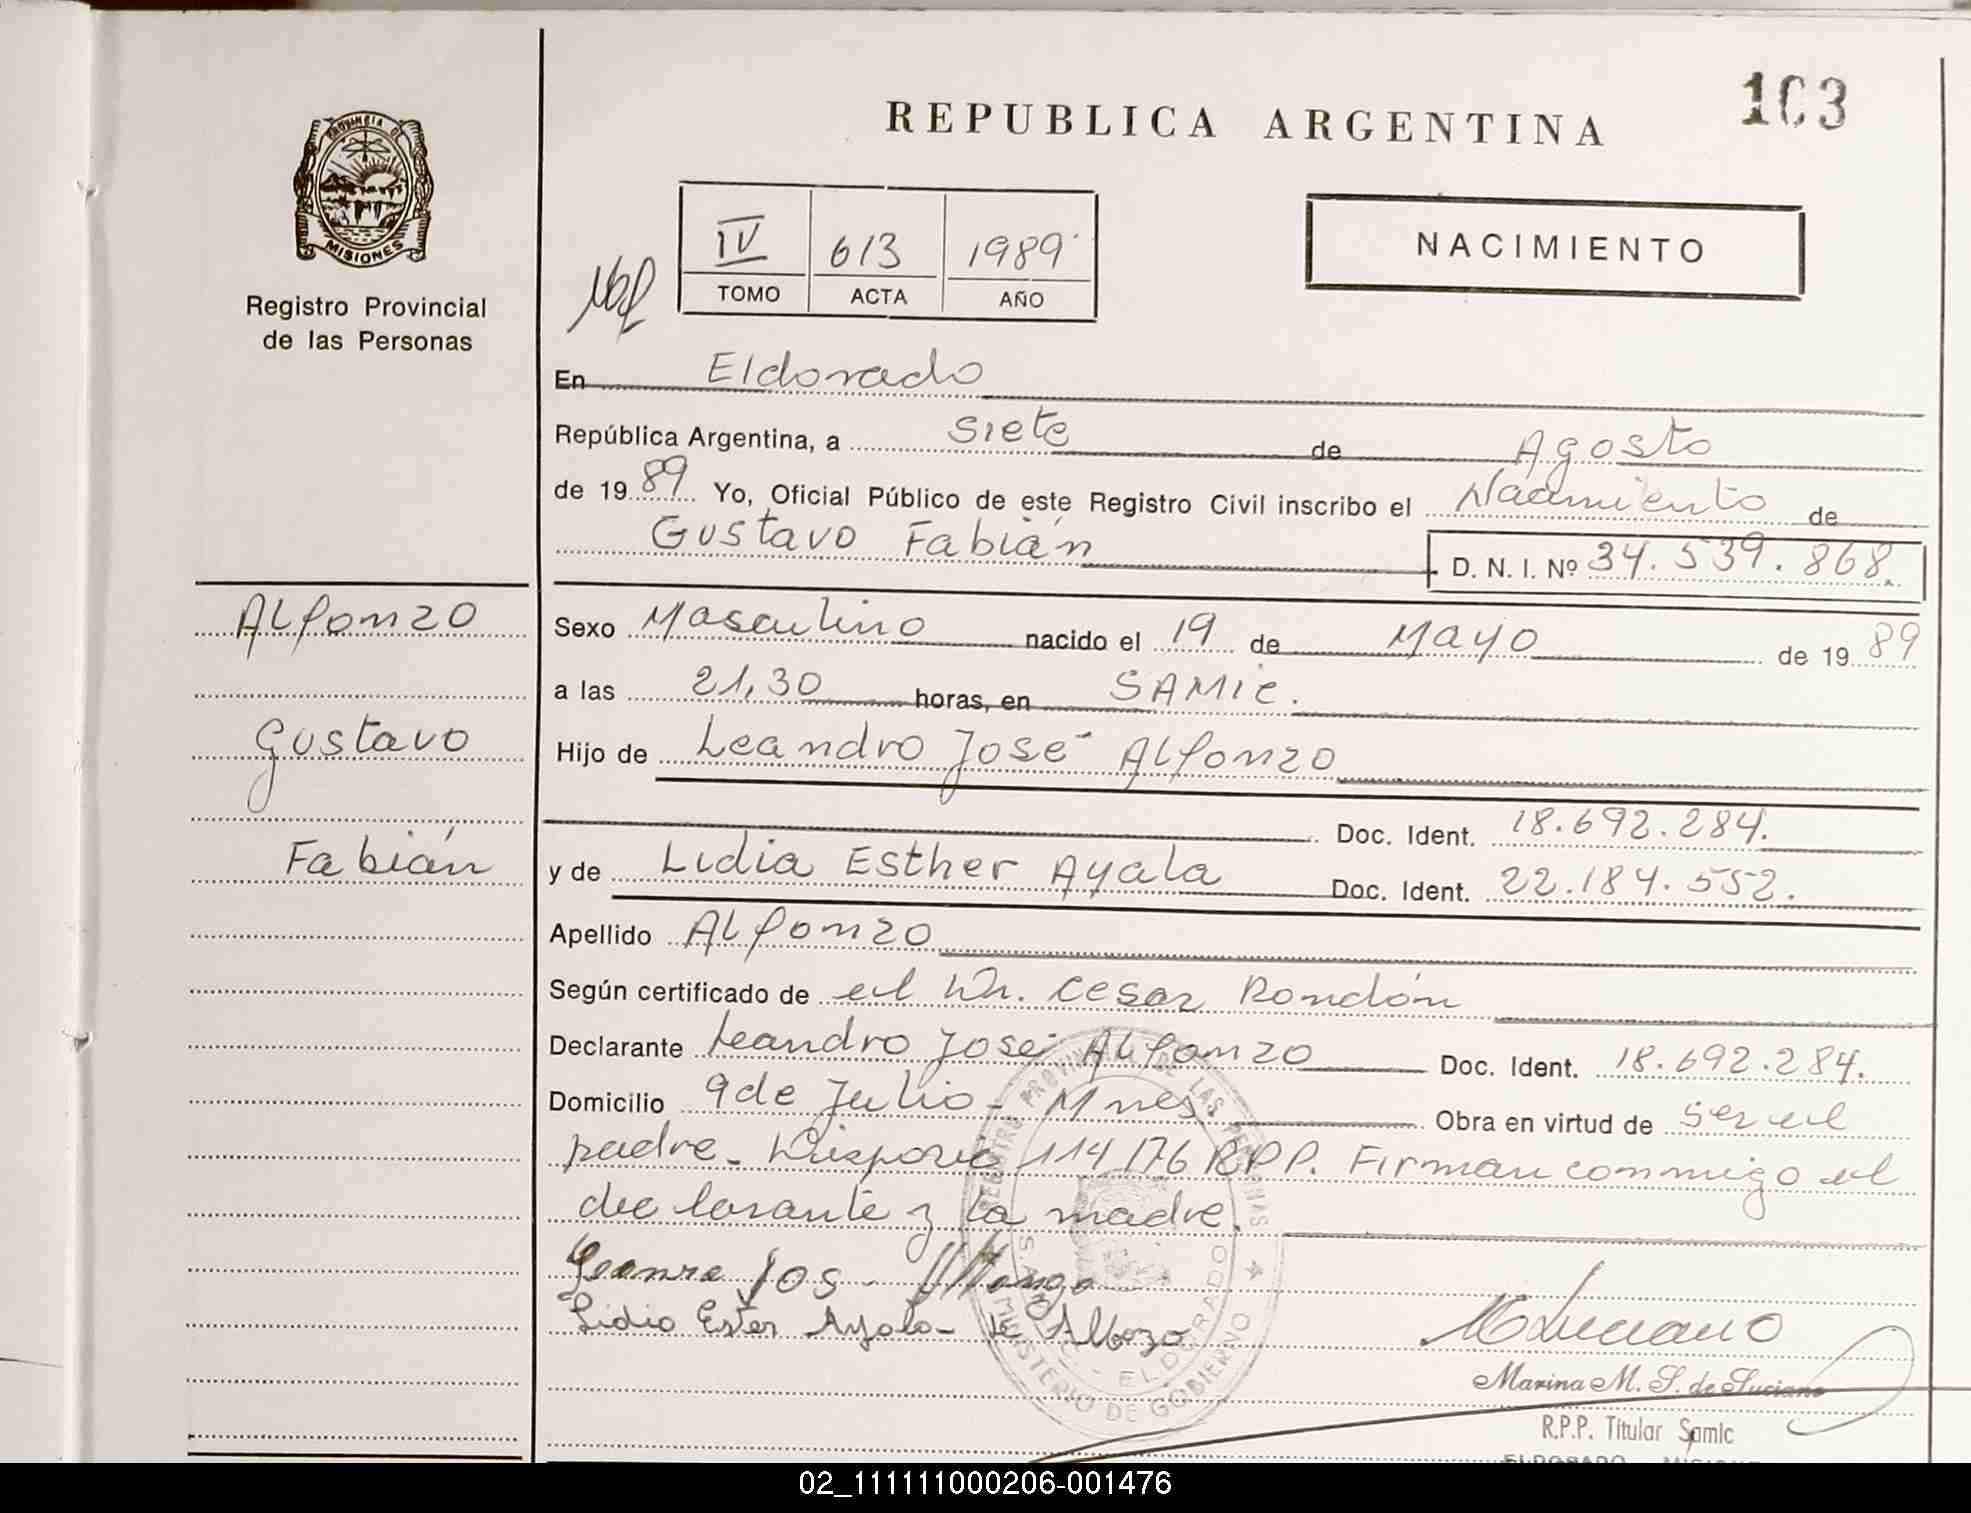 103
REPUBLICA ARGENTINA
PROVINCIA DE
MISIONES
Registro Provincial
de las Personas
IV 613 1989
TOMO ACTA AÑO
NACIMIENTO
En Eldorado
República Argentina, a siete de Agosto
de 1989 Yo, Oficial Público de este Registro Civil inscribo el Nacimiento de
Gustavo Fabián D. N. I. Nº 34.539.868.
Alfonzo
Gustavo
Fabián
Sexo Masculino nacido el 19 de Mayo de 1989
a las 21,30 horas, en SAMIC.
Hijo de Leandro José Alfonzo
Doc. Ident. 18.692.284.
y de Lidia Esther Ayala Doc. Ident. 22.184.552.
Apellido Alfonzo
Según certificado de el Dr. Cesar Rondón
Declarante Leandro José Alfonzo Doc. Ident. 18.692.284.
Domicilio 9 de Julio - Mnes. Obra en virtud de ser el
padre - Disposic 114/76 RPP. Firman conmigo el
declarante y la madre.
Lidio Ester Ayala de
REGISTRO PROVINCIAL DE LAS PERSONAS
ELDORADO
MINISTERIO DE GOBIERNO
M Luciano
Marina M. S. de Luciano
R.P.P. Titular Samic
ELDORADO - MISIONES
02_111111000206-001476